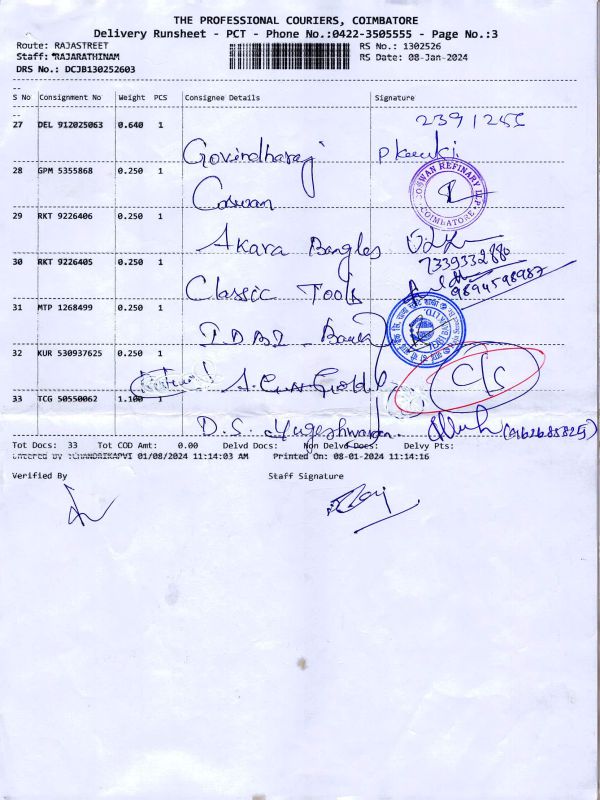 THE PROFESSIONAL COURIERS, COIMBATORE
Delivery Runsheet - PCT - Phone No.:0422-3505555 - Page No.:3
Route: RAJASTREET RS No.: 1302526
Staff: RAJARATHINAM RS Date: 08-Jan-2024
DRS No.: DCJB130252603
S No Consignment No Weight PCS Consignee Details Signature
2391255
27 DEL 912025063 0.640 1
Govindharaj
28 GPM 5355868 0.250 1
Coswan COSWAN REFINERY LLP COIMBATORE
29 RKT 9226406 0.250 1
Akara Bangles
7339332880
30 RKT 9226405 0.250 1
Classic Tools 9894598987
31 MTP 1268499 0.250 1
IDBI Bank
32 KUR 530937625 0.250 1
Gold C/S
33 TCG 50550062 1.100 1
D.S. Yugeshwaran
Tot Docs: 33 Tot COD Amt: 0.00 Delvd Docs: Non Delvd Docs: Delvy Pts:
Entered By :CHANDRIKAPVI 01/08/2024 11:14:03 AM Printed On: 08-01-2024 11:14:16
Verified By Staff Signature